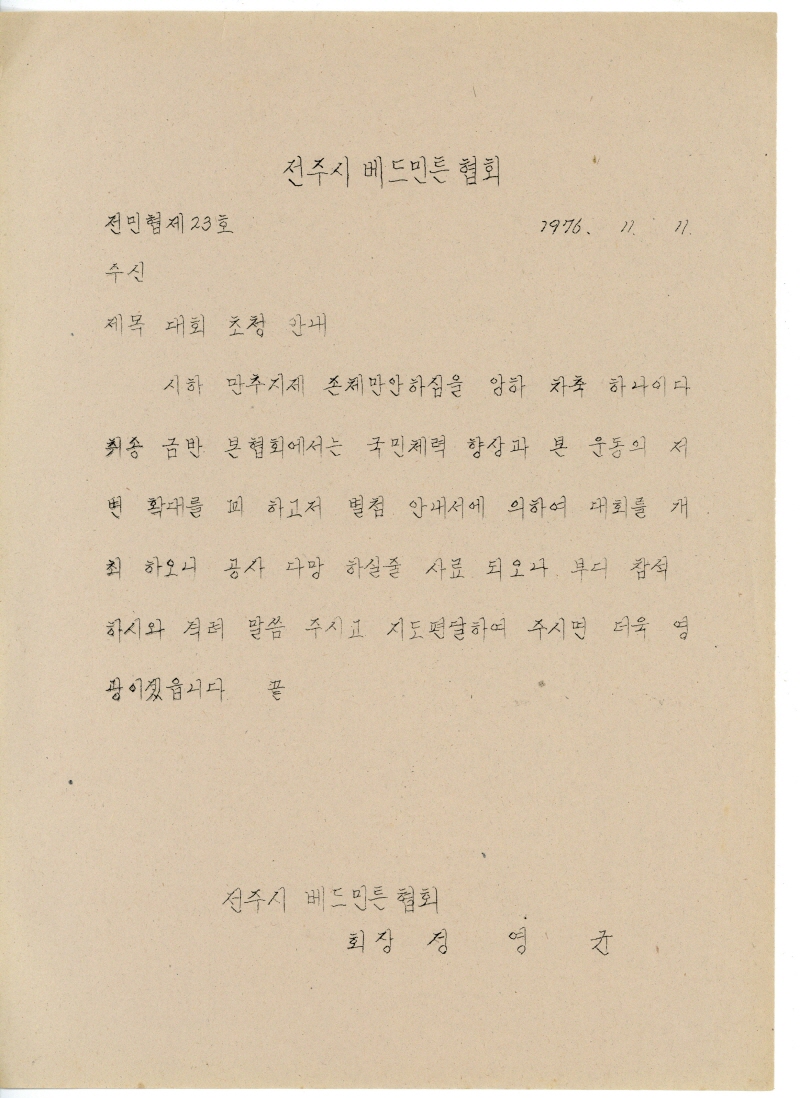 전주시 베드민튼 협회
전민협제23호 1976. 11. 11.
수신
제목 대회 초청 안내
시하 만추지제 존체만안하심을 앙하 차축 하나이다
취종 금반 본협회에서는 국민체력 향상과 본 운동의 저
변 확대를 꾀 하고저 별첨 안내서에 의하여 대회를 개
최 하오니 공사 다망 하실줄 사료 되오나 부디 참석
하시와 격려 말씀 주시고 지도편달하여 주시면 더욱 영
광이겠읍니다 끝
전주시 베드민튼 협회
회장 정 영 균